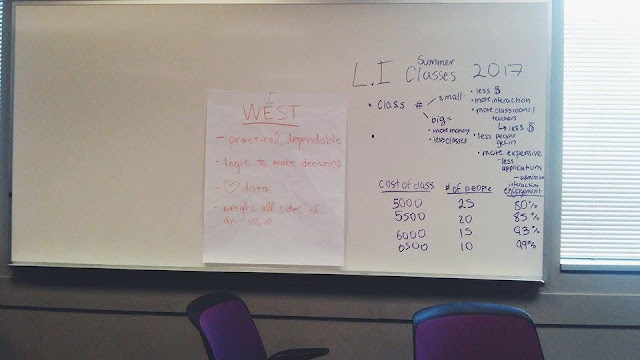 WEST
- practical, dependable
- logic to make decisions
- ♡ data
- weighs all sides of
an issue
L.I Summer Classes 2017
• Class #
small:
• less $
• more interaction
• more classrooms/
teachers
↳ less $
• less people
get in
• more expensive
- less
applications
- admission
big =
• more money
• less classes
•
interaction
Cost of class # of people engagement
5000 25 80%
5500 20 85%
6000 15 93%
6500 10 99%